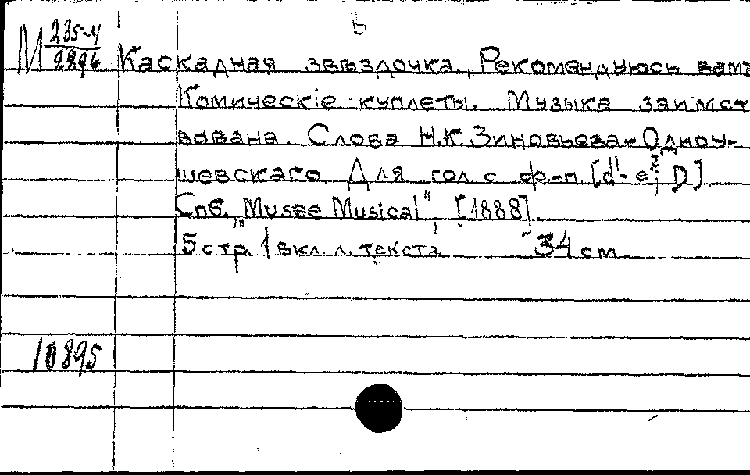 М 235-4/9896 Каскадная звѣздочка. Рекомендуюсь вамъ
Комическіе куплеты. Музыка заимст
вована. Слова Н.К. Зиновьева-Одноу-
шевскаго Для гол. с ф-п. [d'-e²; D]
Спб. „Musee Musical“, [1888].
5 стр. 1 вкл. л. текста 34 cm
10895